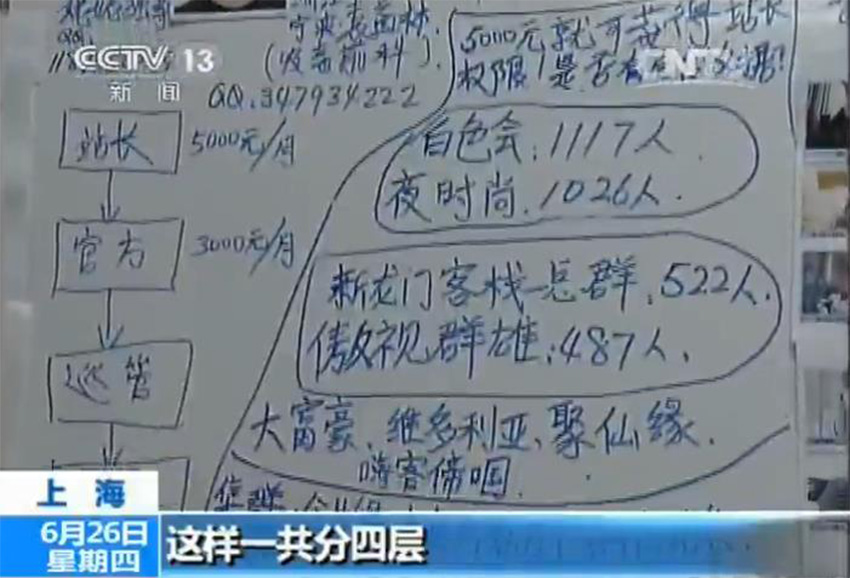 CCTV 13
新闻
(吸毒前科)
QQ.347934222
5000元就可获得站长
权限!是否有
站长 5000元/月
官方 3000元/月
巡管
白色会:1117人.
夜时尚.1026人.
新龙门客栈总群.522人.
傲视群雄:487人.
大富豪、维多利亚、聚仙缘.
嗨客帝国.
上海
6月26日
星期四
这样一共分四层